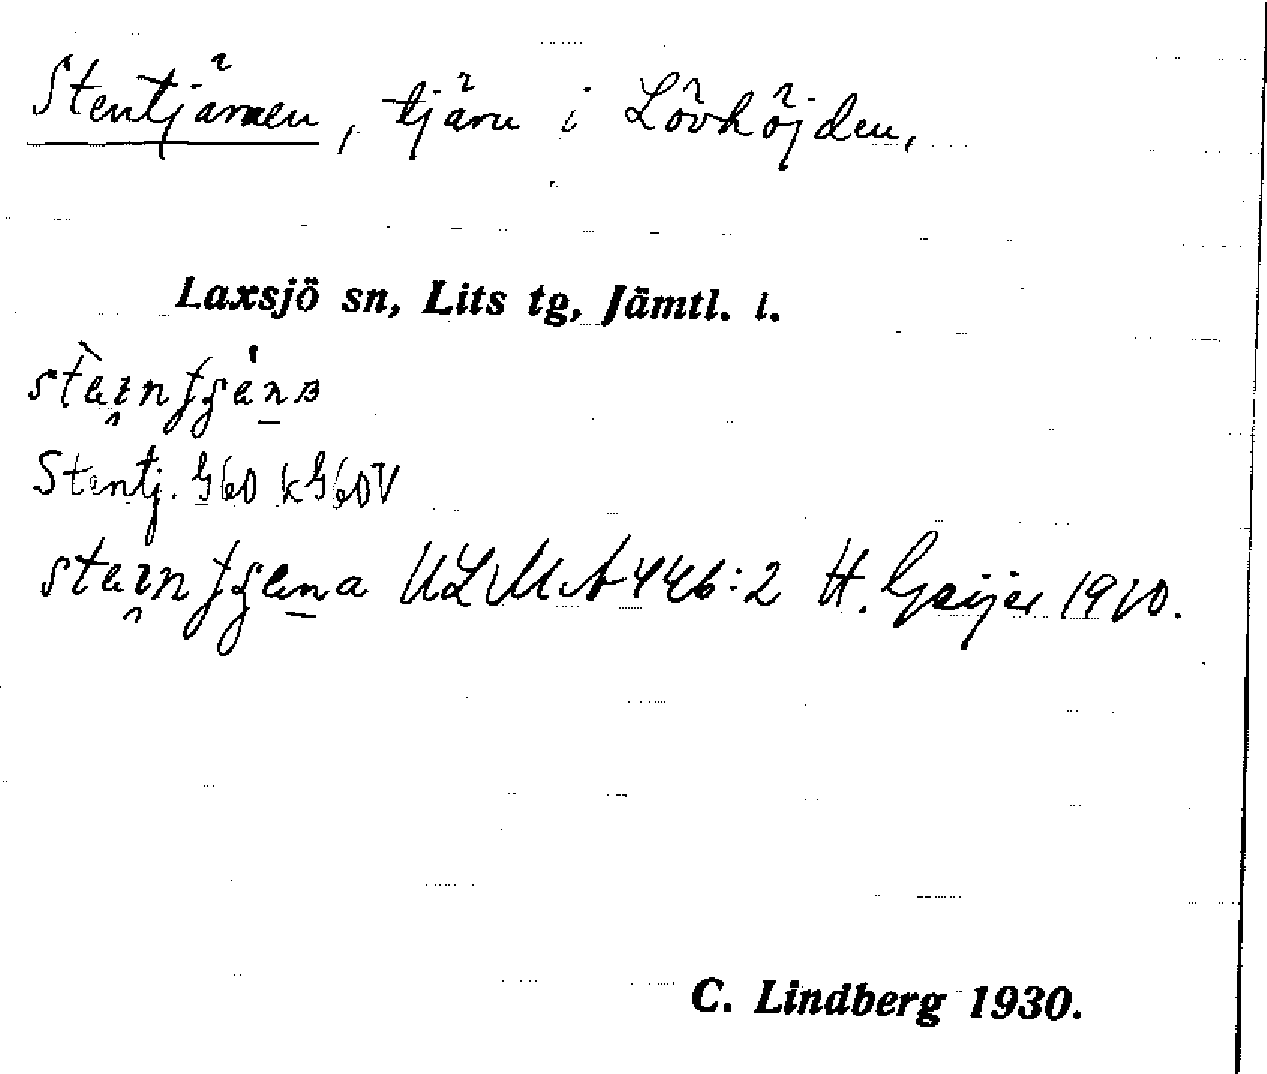 Stentjärnen, tjärn i Lövhöjden,
Laxsjö sn, Lits tg, Jämtl. l.
Stentj. G60 kG60V
ULMA 446:2 H. Geijer 1910.
C. Lindberg 1930.